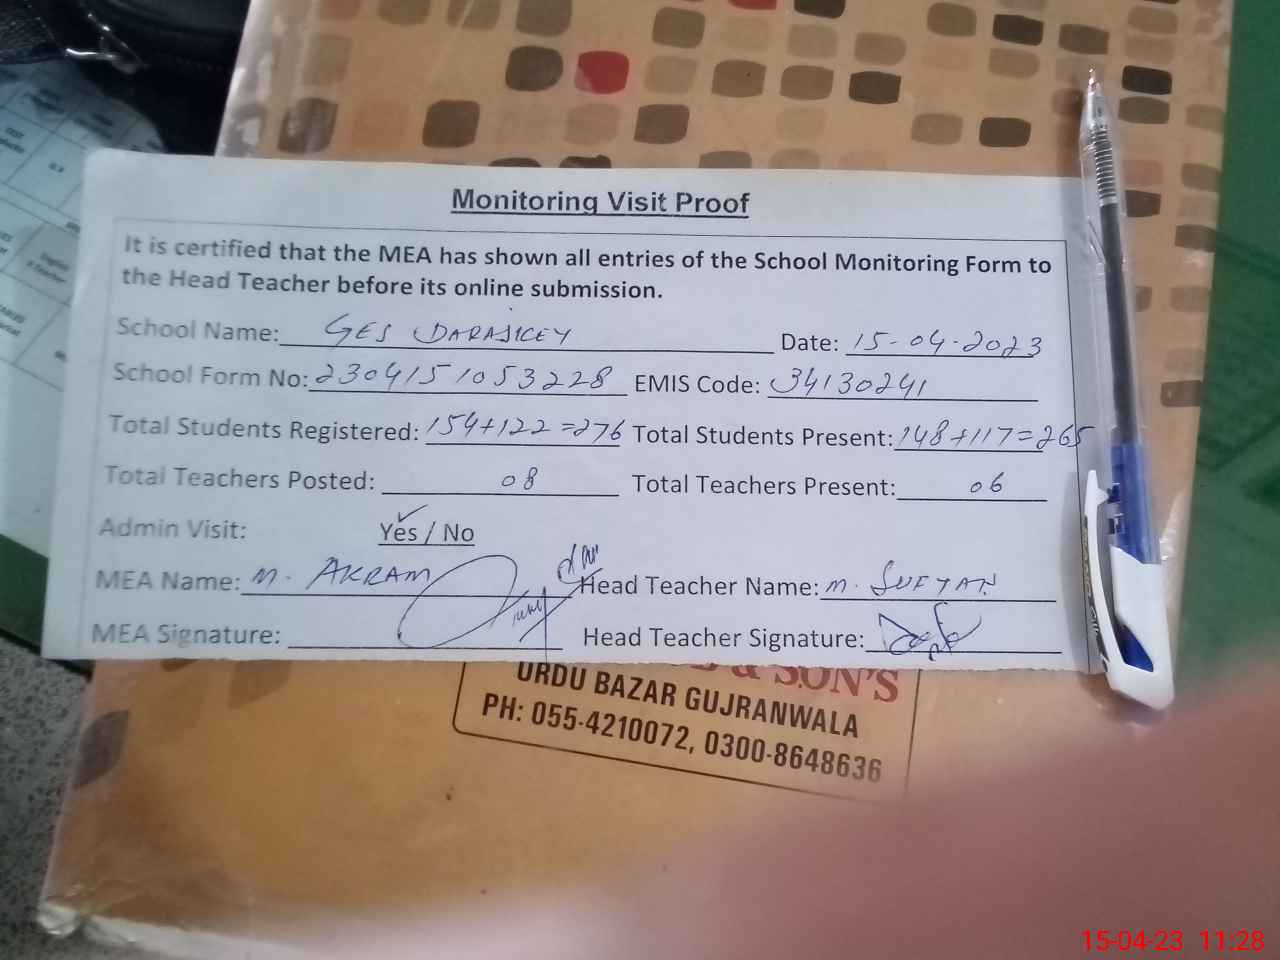 Monitoring Visit Proof
It is certified that the MEA has shown all entries of the School Monitoring Form to
the Head Teacher before its online submission.
School Name: GES Date: 15-04-2023
School Form No: 2304151053228 EMIS Code: 34130241
Total Students Registered: 154+122=276 Total Students Present: 148+117=265
Total Teachers Posted: 08 Total Teachers Present: 06
Admin Visit: Yes / No
MEA Name: M. AKRAM Head Teacher Name: M. SUFYAN
MEA Signature: Head Teacher Signature:
& SON'S
URDU BAZAR GUJRANWALA
PH: 055-4210072, 0300-8648636
15-04-23 11:28